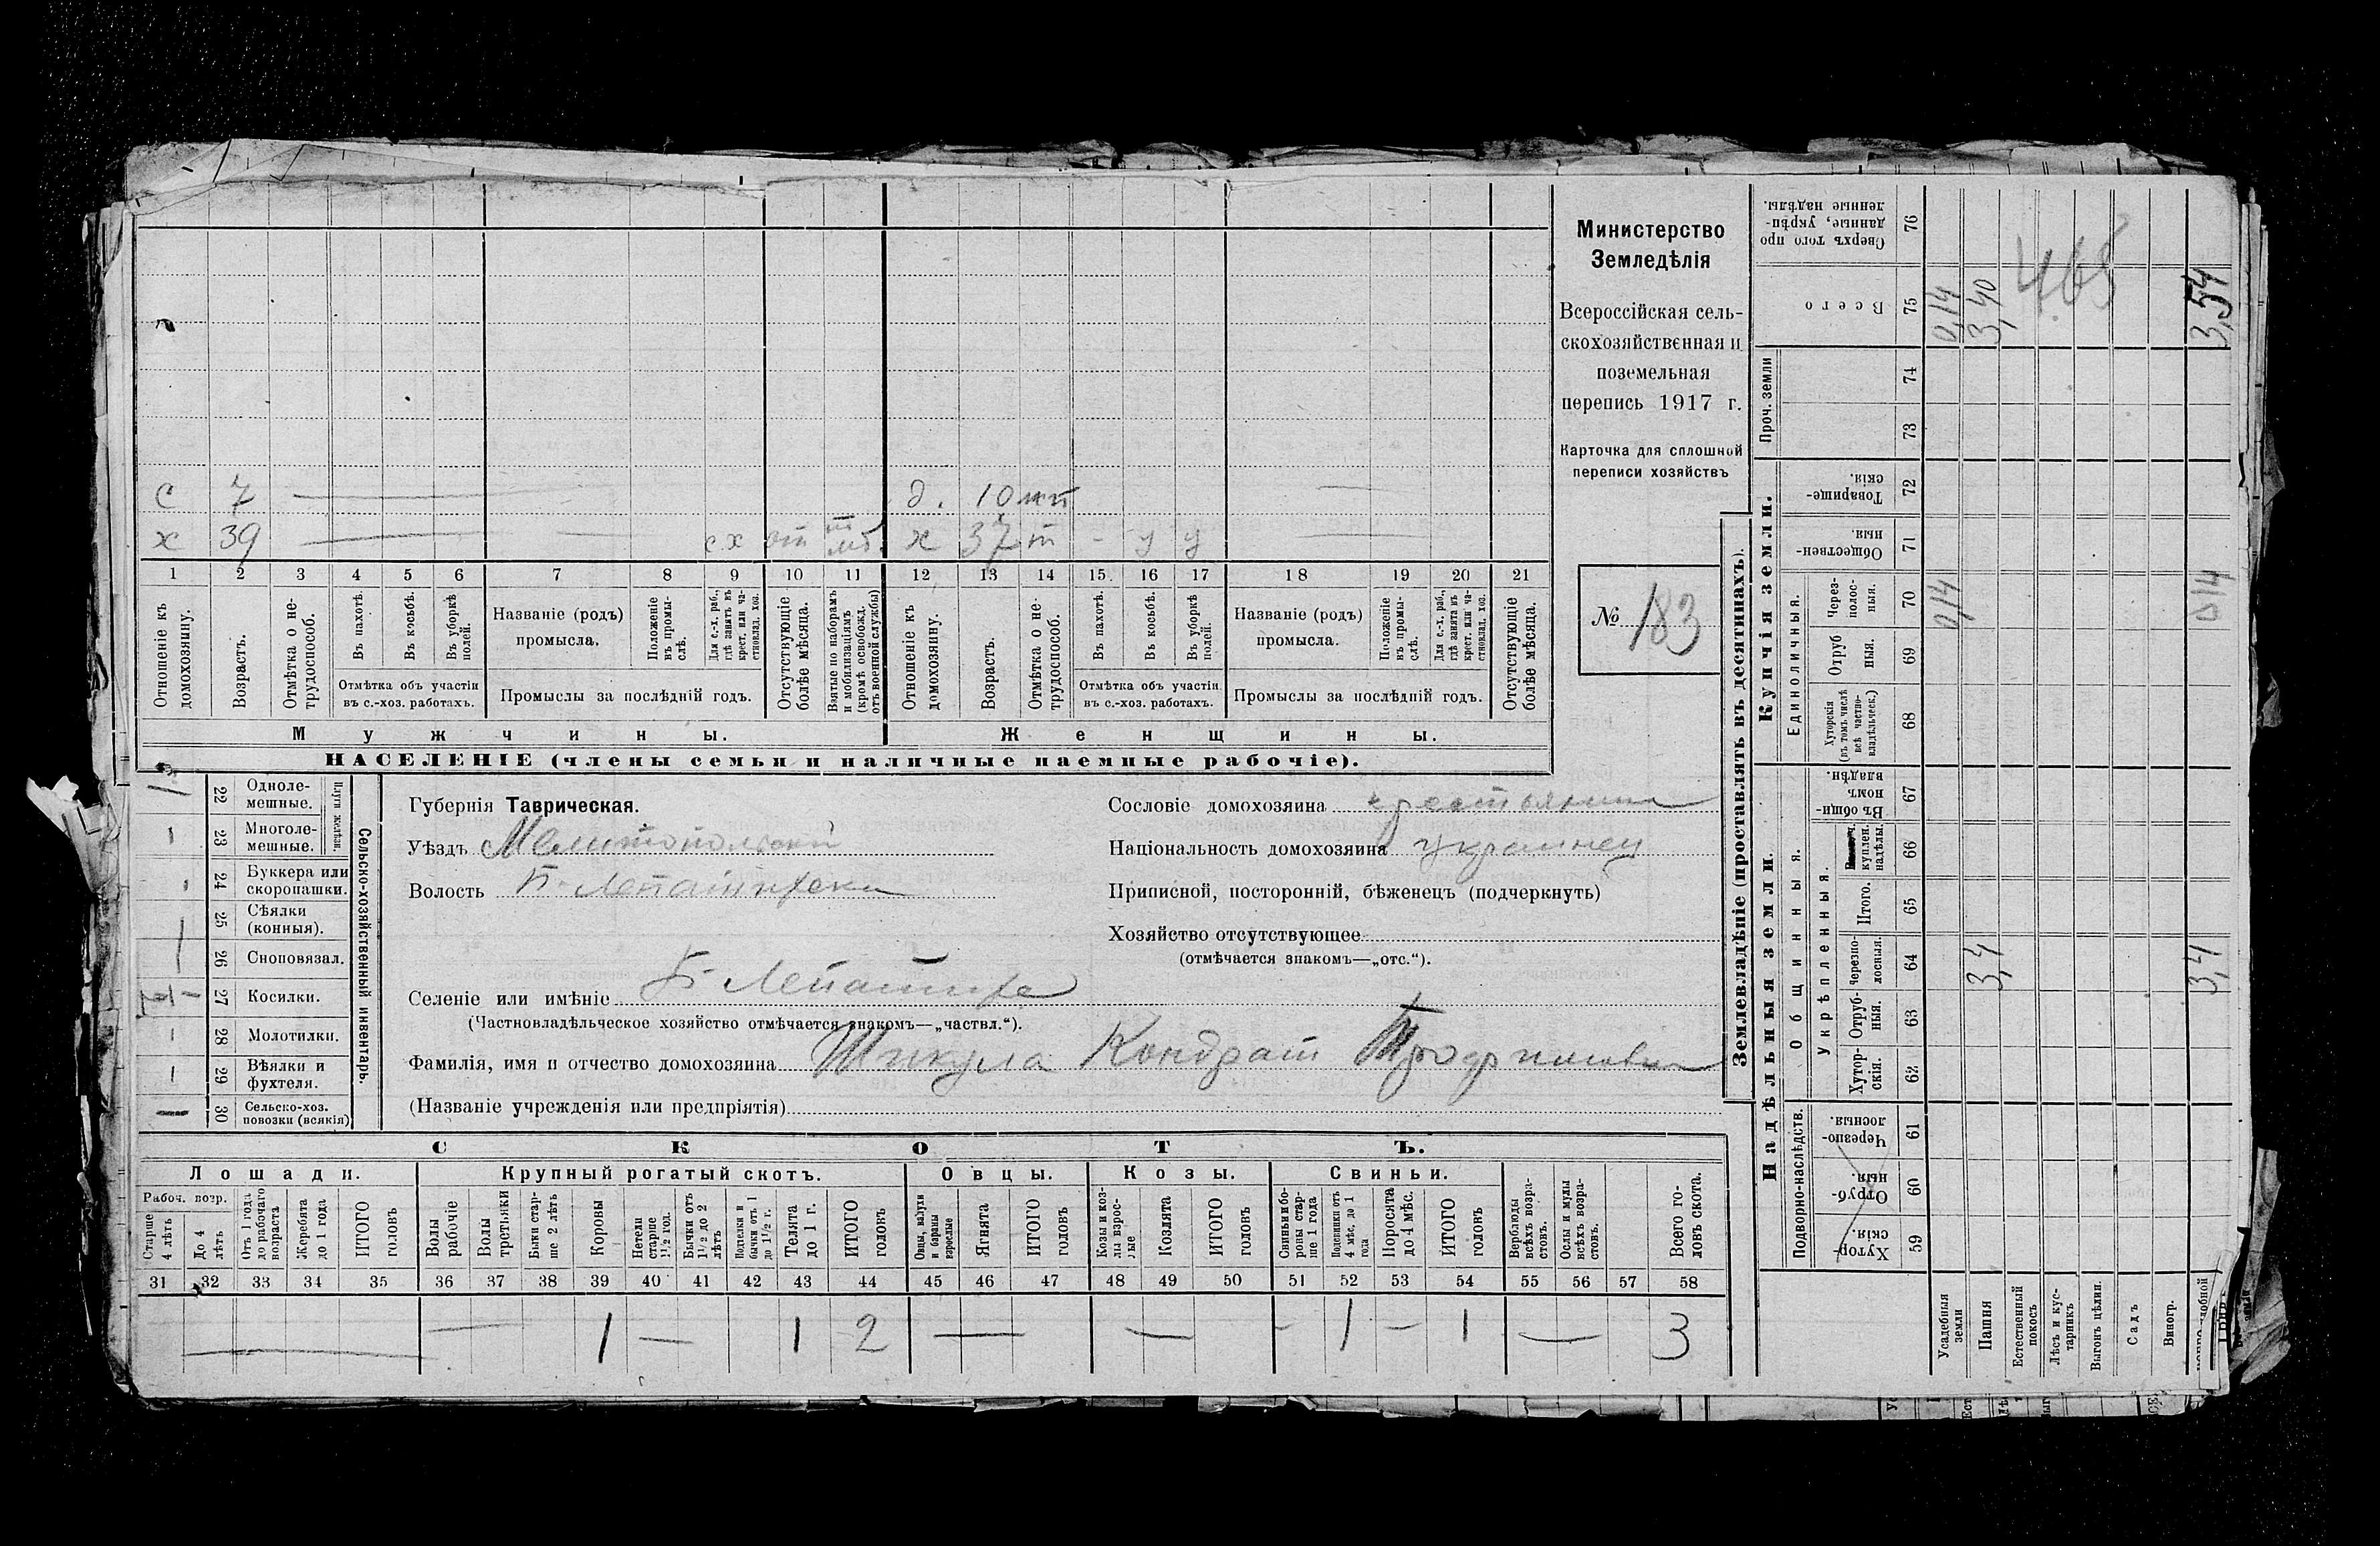 Министерство
Земледѣлія
Всероссійская сель-
скохозяйственная и
поземельная
перепись 1917 г.
Карточка для сплошной
переписи хозяйствъ
№ 183
с 7 д. 10
х 39 сх х 37 - у у
1 2 3 4 5 6 7 8 9 10 11 12 13 14 15. 16 17 18 19 20 21
Отношеніе къ домохозяину.
Возрастъ.
Отмѣтка о не-трудоспособ.
Въ пахотѣ.
Въ косьбѣ.
Въ уборкѣ полей.
Отмѣтка объ участіи
въ с.-хоз. работахъ.
Названіе (родъ)
промысла.
Положеніе въ промы-слѣ.
Для с.-х. раб., гдѣ занятъ въ крест. или ча-стновлад. хоз.
Промыслы за послѣдній годъ.
Отсутствующіе болѣе мѣсяца.
Взятые по наборамъ и мобилизаціямъ (кромѣ освобожд. отъ военной службы)
Отношеніе къ домохозяину.
Возрастъ.
Отмѣтка о не-трудоспособ.
Въ пахотѣ.
Въ косьбѣ.
Въ уборкѣ полей.
Отмѣтка объ участіи
въ с.-хоз. работахъ.
Названіе (родъ)
промысла.
Положеніе въ промы-слѣ.
Для с.-х. раб., гдѣ занятъ въ крест. или ча-стновлад. хоз.
Промыслы за послѣдній годъ.
Отсутствующіе болѣе мѣсяца.
Мужчины. Женщины.
НАСЕЛЕНІЕ (члены семьи и наличные наемные рабочіе).
Сельско-хозяйственный инвентарь.
Плуги желѣзн.
22 Одноле-
мешные.
23 Многоле-
мешные.
24 Буккера или
скоропашки.
25 Сѣялки
(конныя).
26 Сноповязал.
27 Косилки.
28 Молотилки.
29 Вѣялки и
фухтеля.
30 Сельско-хоз.
повозки (всякія)
Губернія Таврическая.
Уѣздъ Мелитопольский
Волость Б. Лепатихска
Селеніе или имѣніе Б- Лепатиха
(Частновладѣльческое хозяйство отмѣчается знакомъ—„частвл.“).
Фамилія, имя и отчество домохозяина Шикула Кондрат
(Названіе учрежденія или предпріятія)
Сословіе домохозяина крестьянин
Національность домохозяина украинец
Приписной, посторонній, бѣженецъ (подчеркнуть)
Хозяйство отсутствующее
(отмѣчается знакомъ—„отс.“).
СКОТЪ.
Лошади. Крупный рогатый скотъ. Овцы. Козы. Свиньи.
Рабоч. возр.
Старше 4 лѣтъ
До 4 лѣтъ
Отъ 1 года до рабочаго возраста
Жеребята до 1 года
ИТОГО головъ
Волы рабочіе
Волы третьяки
Быки стар-ше 2 лѣтъ
Коровы
Нетели старше 1½ год.
Бычки отъ 1½ до 2 лѣтъ
Подтелки и бычки отъ 1 до 1½ г.
Телята до 1 г.
ИТОГО головъ
Овцы, валухи и бараны взрослые
Ягнята
ИТОГО головъ
Козы и коз-лы взрос-лые
Козлята
ИТОГО головъ
Свиньи и бо-ровы стар-ше 1 года
Подсвинки отъ 4 мѣс. до 1 года
Поросята до 4 мѣс.
ИТОГО головъ
Верблюды всѣхъ возра-стовъ.
Ослы и мулы всѣхъ возра-стовъ.
Всего го-ловъ скота.
31 32 33 34 35 36 37 38 39 40 41 42 43 44 45 46 47 48 49 50 51 52 53 54 55 56 57 58
— — 1 — 1 2 — — - 1 - 1 — 3
Землевладѣніе (проставлять въ десятинахъ).
Надѣльныя земли.
Подворно-наслѣдств.
Хутор-скія. 59
Отруб-ныя. 60
Черезпо-лосныя. 61
Общинныя.
Укрѣпленныя.
Хутор-скія. 62
Отруб-ныя. 63
Черезпо-лосныя. 64
Итого. 65
куплен. надѣлы. 66
Въ общин-номъ владѣн. 67
Купчія земли.
Единоличныя.
Хуторскія (въ томъ числѣ всѣ частно-владѣльческ.) 68
Отруб ныя. 69
Черезполос-ныя. 70
Обществен-ныя. 71
Товарище-скія. 72
Проч. земли
73 74
Всего 75
Сверхъ того про данные, укрѣп-ленные надѣлы. 76
Усадебныя земли 0,14 0,14
Пашня 3,4 3,40
Естественный покосъ
Лѣсъ и кус-тарникъ
Выгонъ цѣлин.
Садъ
Виногр.
3,4 0,14 3,54